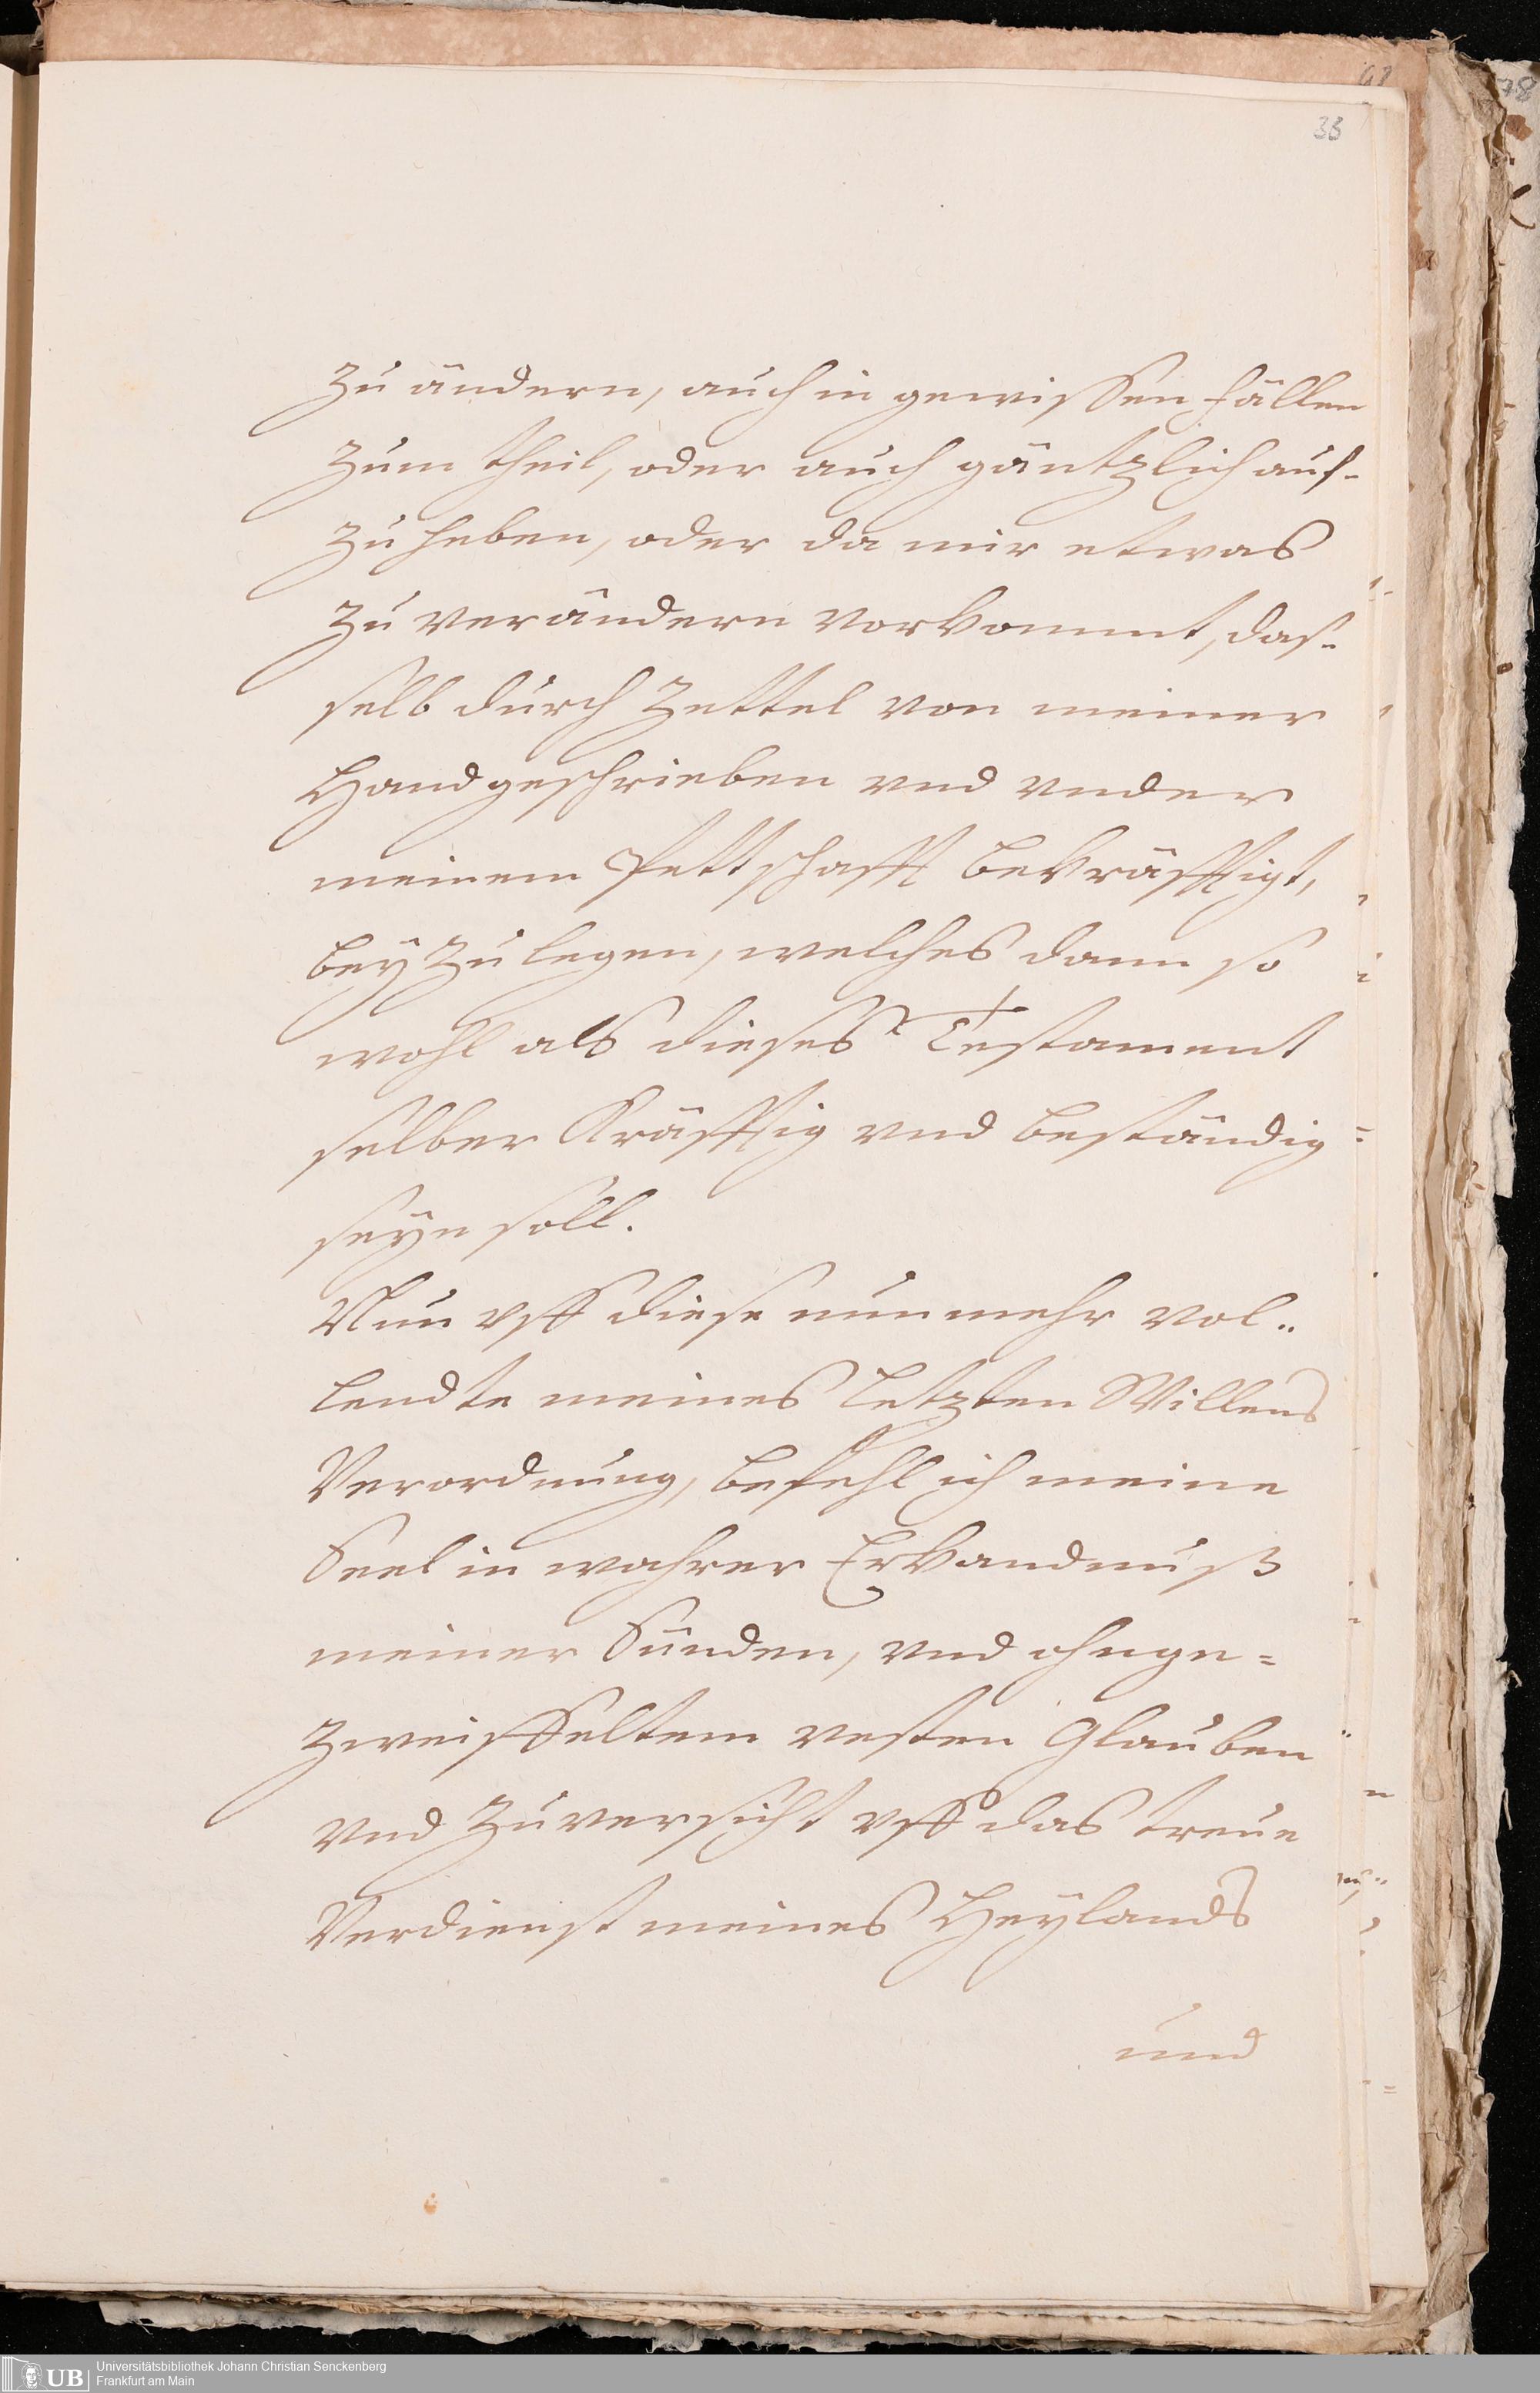 33
zu ändern, auch in gewissen fällen
zum theil, oder auch gäntzlich auf-
zuheben, oder da mir etwas
zu verändern vorkommt, das-
selb durch Zettel von meiner
Hand geschrieben vnd vnder
meinem Pettschafft bekräfftigt,
beyzulegen, welches dann so
wohl als dieses Testament
selber kräfftig vnd beständig
seyn soll.
Nun vff diese nunmehr vol-
lendte meines letzten Willens
Verordnung, befehl ich meine
Seel in wahrer Erkandnuß
meiner Sünden, vnd ohnge=
zweiffeltem vesten Glauben
vnd Zuversicht vff das treue
Verdienst meines Heylands
und
UB
Universitätsbibliothek Johann Christian Senckenberg
Frankfurt am Main